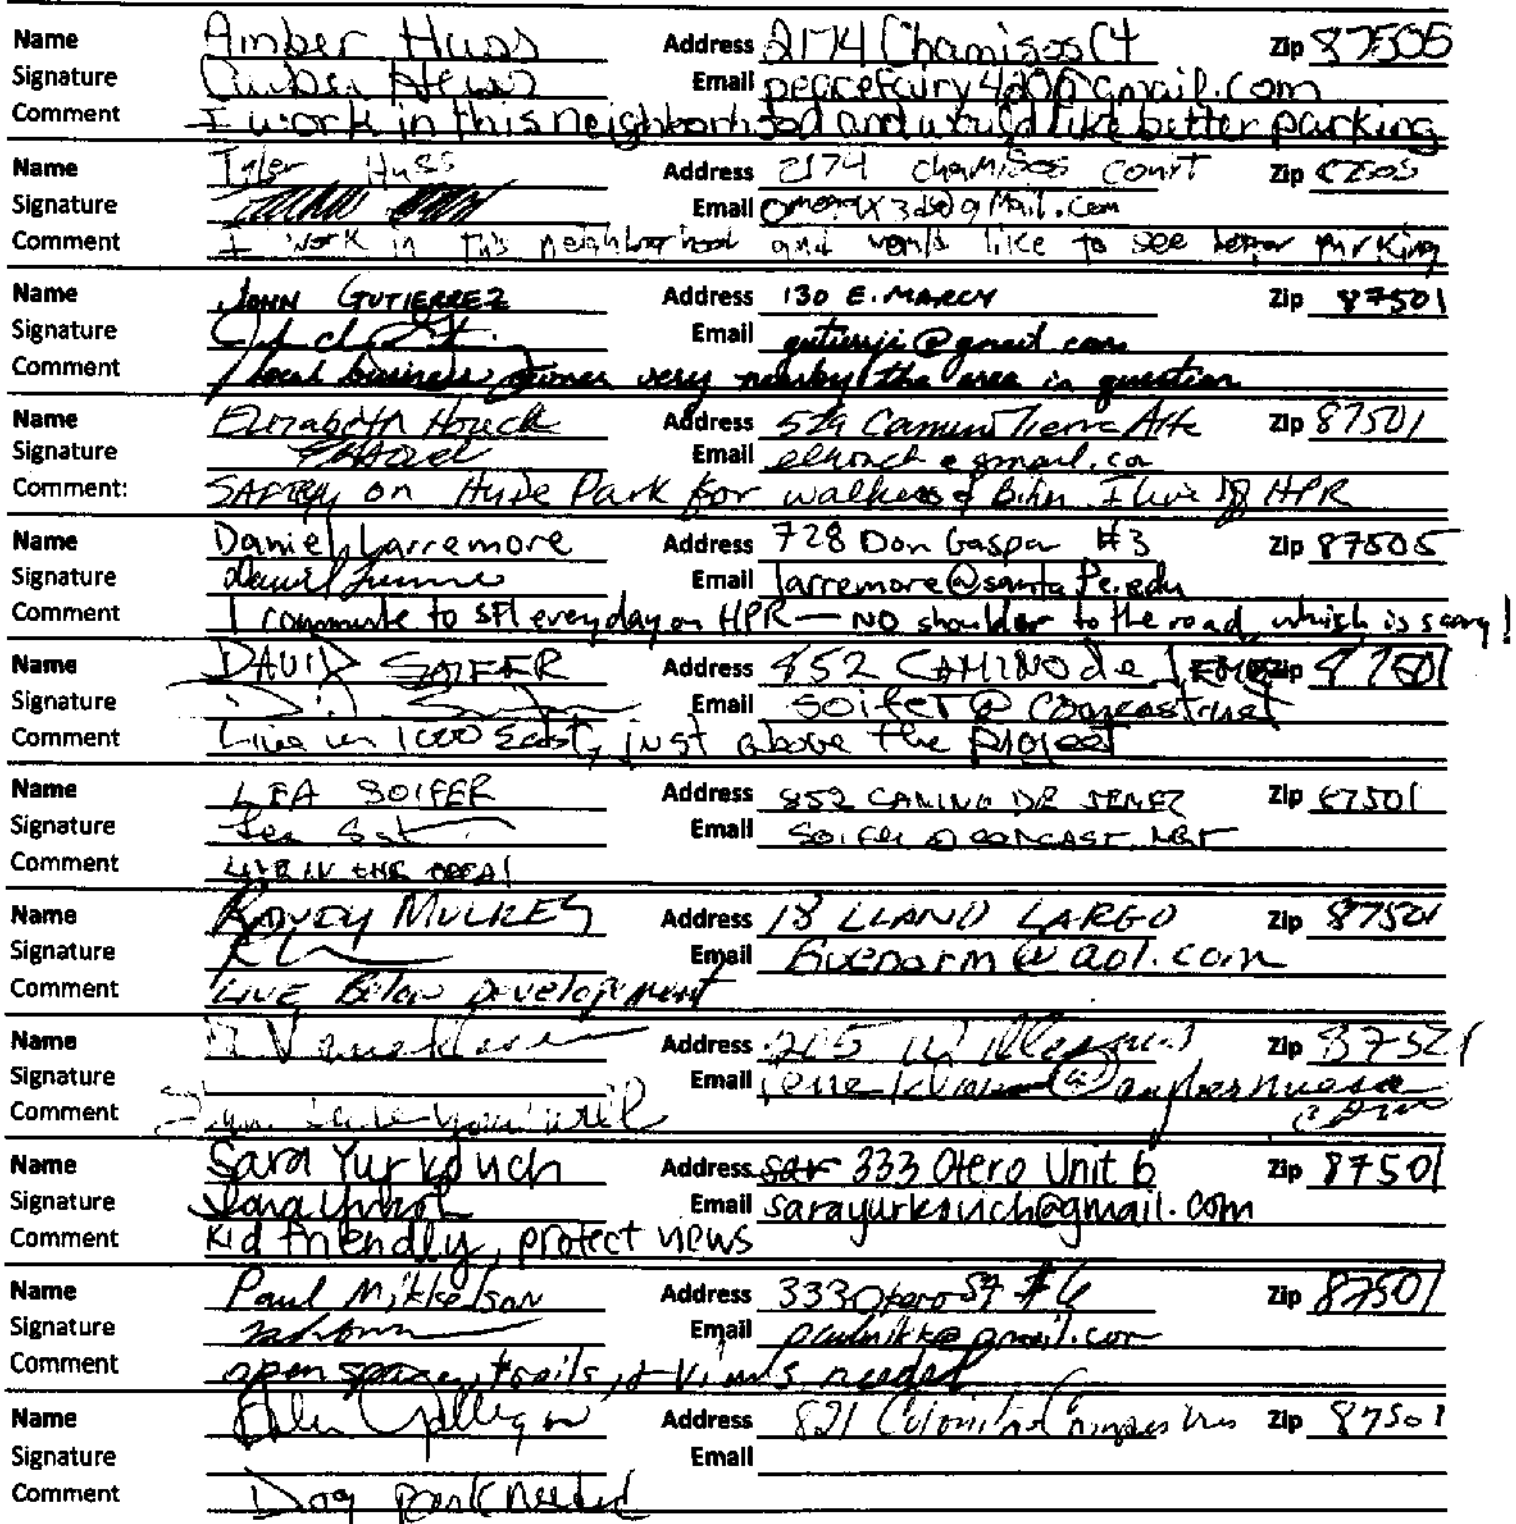 Name Amber Huss Address 2174 Chamisos Ct Zip 87505
Signature Amber Huss Email peacefairy420@gmail.com
Comment I work in this neighborhood and would like better parking
Name Tyler Huss Address 2174 Chamisos Court Zip 87505
Signature Email @gmail.com
Comment I work in this neighborhood and would like to see better parking
Name JOHN GUTIERREZ Address 130 E. MARCY Zip 87501
Signature Email @gmail.com
Comment local business very nearby the area in question
Name Elizabeth Houck Address Camino Tierra Alta Zip 87501
Signature Email @gmail.co
Comment: SAFTEY on Hyde Park for walkers & I live off HPR
Name Daniel Larremore Address 728 Don Gaspar #3 Zip 87505
Signature Email larremore@santafe.edu
Comment I commute to SFI everyday on HPR — NO shoulder to the road, which is scary!
Name DAVID SOIFER Address 852 CAMINO de Zip 87501
Signature Email soifer@comcast.net
Comment Live in 1000 East, just above the project
Name LEA SOIFER Address 852 CAMINO DE JEMEZ Zip 87501
Signature Email SOIFER@COMCAST.NET
Comment LIVE IN THE AREA!
Name MULKEY Address 18 LLANO LARGO Zip 87501
Signature Email @aol.com
Comment LIVE Below Development
Name Address Zip 87501
Signature Email
Comment
Name Sara Yurkovich Address 333 Otero Unit 6 Zip 87501
Signature Email sarayurkovich@gmail.com
Comment Kid friendly, protect views
Name Paul Mikkelson Address 333 Otero St #6 Zip 87501
Signature Email paulmikk@gmail.com
Comment open space, trails, & views needed
Name Address 821 Zip 87501
Signature Email
Comment Dog park needed